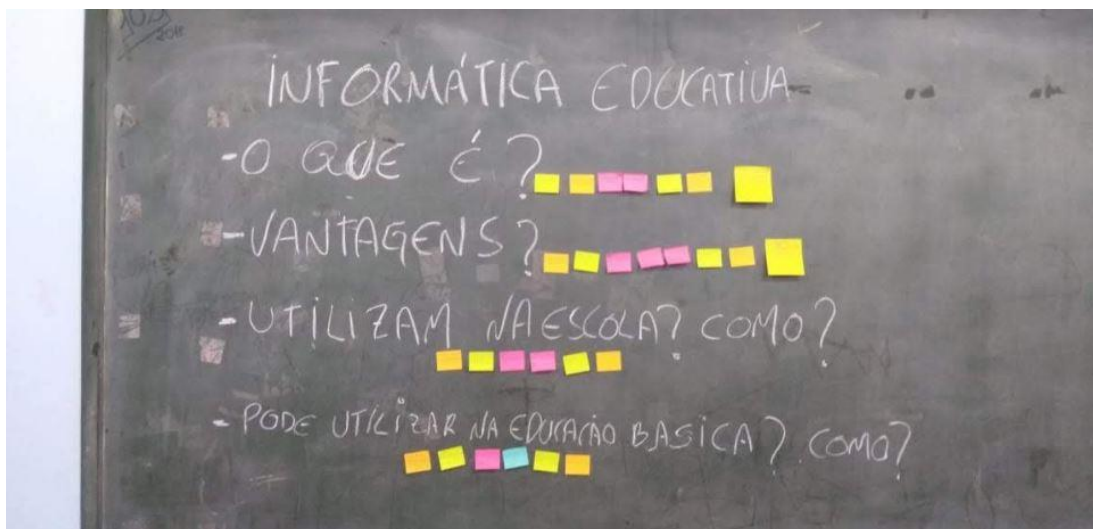 2018
INFORMÁTICA EDUCATIVA
-O QUE É?
-VANTAGENS?
-UTILIZAM NA ESCOLA? COMO?
- PODE UTILIZAR NA EDUCAÇÃO BASICA? COMO?